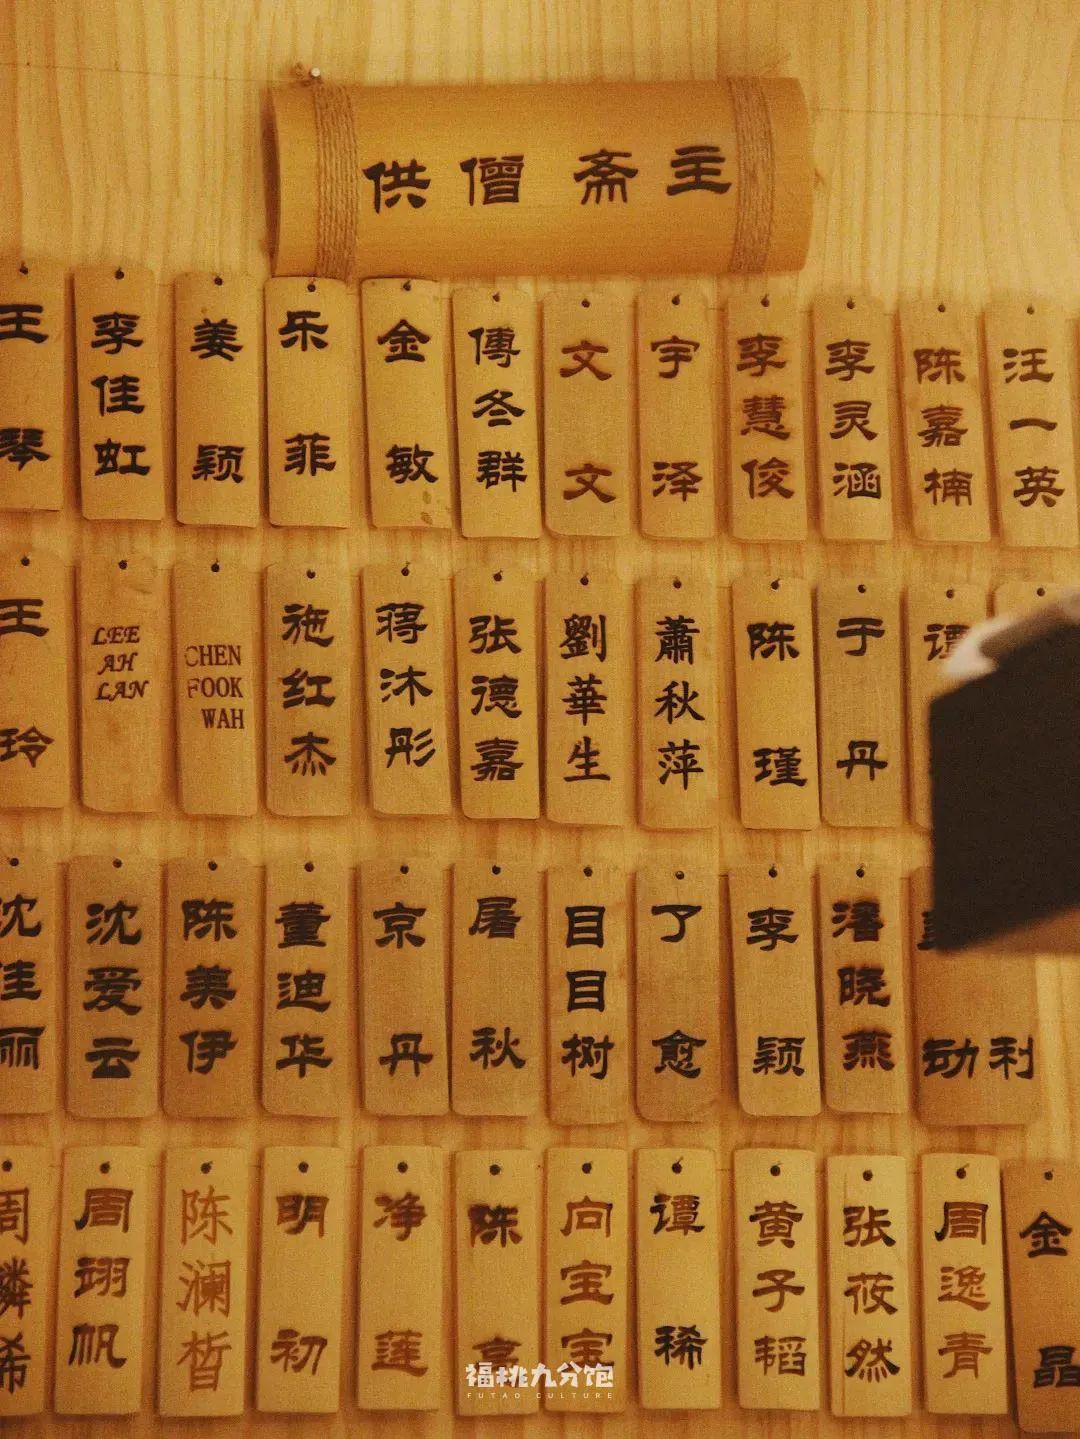 供僧 斋主
王琴
李佳虹
姜颖
乐菲
金敏
傅冬群
文文
宇泽
李慧俊
李灵涵
陈嘉楠
汪一英
王玲
LEE
AH
LAN
CHEN
FOOK
WAH
施红杰
蒋沐彤
张德嘉
劉華生
蕭秋萍
陈瑾
于丹
谭
沈佳丽
沈爱云
陈美伊
董迪华
京丹
屠秋
目目树
了愈
李颖
潘晓燕
动利
周麟浠
周翊帆
陈澜皙
明初
净莲
陈京
向宝宝
谭稀
黄子韬
张莜然
周逸青
金晶
福桃九分饱
FUTAO CULTURE